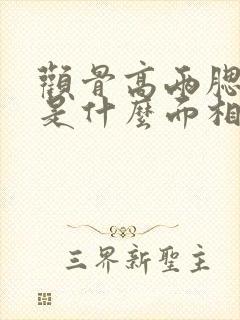 顴骨高兩腮
是什麼面相
三界新聖主